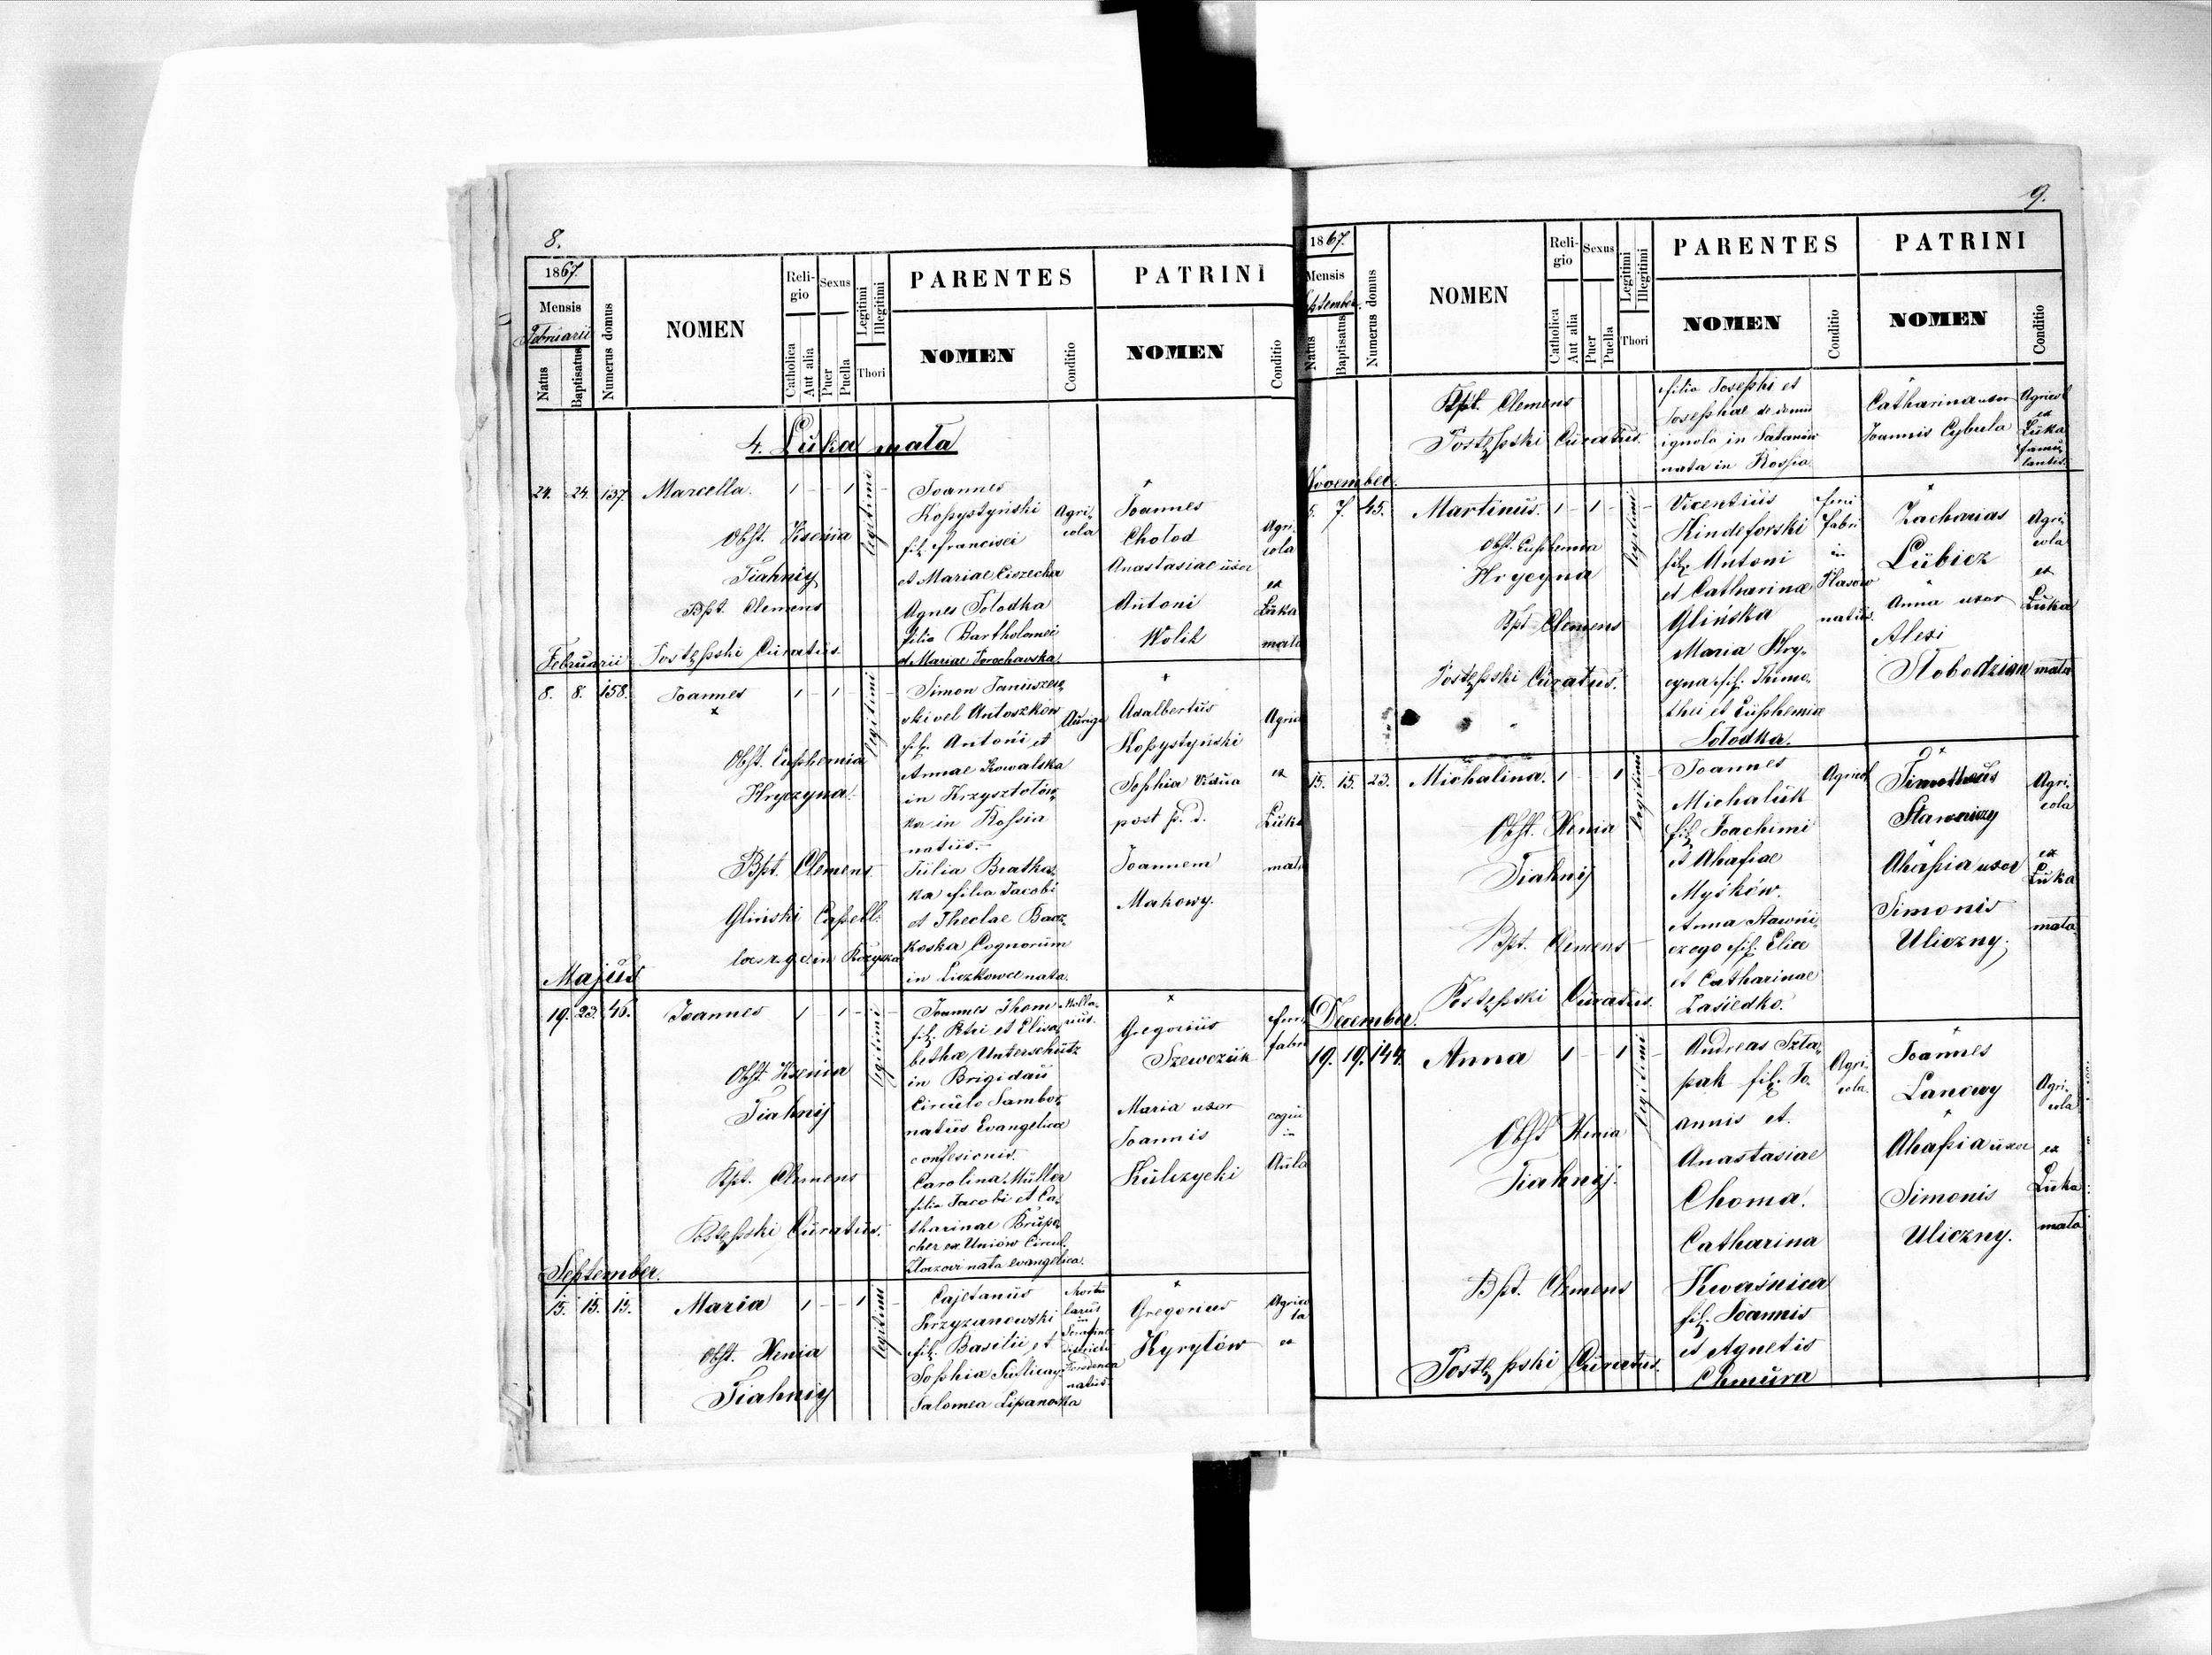 8.
1867.
Mensis
Februarii
Natus
Baptisatus
Numerus domus
NOMEN
Religio
Catholica
Aut alia
Sexus
Puer
Puella
Legitimi
Illegitimi
Thori
PARENTES
NOMEN
Conditio
PATRINI
NOMEN
Conditio
4. Łuka mała
24. 24. 137 Marcella. 1 - - 1 legitimi
Obst. Ksenia
Tiahniy
Bpt. Clemens
Postępski Curatus
Joannes
Kopystyński
fil. Francisci
et Mariae Ciozecha
Agnes Sołodka
filia Bartholomei
et Mariae Torochavska.
Agri-
cola
Joannes
Chołod
Anastasiae uxor
Antoni
Wolik
Agri-
cola
ex
Łuka
mała
Februarii
8. 8. 158. Joannes 1 - 1 - legitimi
Obst. Euphemia
Hryczyna.
Bpt. Clemens
Gliński Capell:
Simon Januszew
ski vel Antoszków
fil. Antoni et
Annae Kowalska
in Krzysztofów
ka in Rossia
natus.
Julia Bratko
ka filia Jacobi
et Theclae Bacz
koska Cognorum
in Liczkowce nata.
Auriga
Adalbertus
Kopystyński
Sophia vidua
post p. d.
Joannem
Makowy.
Agric
ex
Łuka
mała
Majus
19. 23. 46. Joannes 1 - 1 - legitimi
Obst. Ksenia
Tiahnij
Bpt. Clemens
Postępski Curatus.
Joannes Thom
fil. Petri et Elisa
bethae Unterschütz
in Brigidau
Circulo Sambor
natus Evangelica
confesionis.
Carolina Müller
filia Jacobi et Ca-
tharinae Brupa
cher ex Uniów Circul.
Złoczovi nata evangelica.
Gregorius
Szewczuk
Maria uxor
Joannis
Kulczycki
ferri
fabri
in
Aula
September.
15. 15. 15. Maria 1 - - 1 legitimi
Obst. Xenia
Tiahniy
Cajetanus
Krzyzanowski
fil. Basilii et
Sophia
Salomea Lipanowska
natus
Gregorius
Kyrylów
Agrico
la
ex
9.
1867.
Mensis
September
Natus
Baptisatus
Numerus domus
NOMEN
Religio
Catholica
Aut alia
Sexus
Puer
Puella
Legitimi
Illegitimi
Thori
PARENTES
NOMEN
Conditio
PATRINI
NOMEN
Conditio
Bpt. Clemens
Postępski Curatus.
filia Josephi et
Josephae de domu
ignota in Satanów
nata in Rossia.
Catharina uxor
Joannis Cybula
Agricol
ex
Łuka
famu-
lantis.
November.
5. 7. 45. Martinus. 1 - 1 - legitimi
Obst. Euphemia
Hrycyna
Bpt Clemens
Postępski Curatus.
Vicentius
Kindeforski
fil. Antoni
et Catharinae
Glińska
Maria Hry-
cyna fil. Thimo-
thei et Euphemiae
Sołodka.
ferri
fabri
in
natus.
Zacharias
Lubicz
Anna uxor
Alexi
Słobodzian
Agri-
cola
ex
Łuka
mała
15. 15. 23. Michalina. 1 - - 1 legitimi
Obst. Xenia
Tiahnij
Bpt. Clemens
Postępski Curatus.
Joannes
Michaluk
fil. Joachimi
et Ahafiae
Myśków.
Anna Stawni-
czego fil. Eliae
et Catharinae
Zasiedko.
Agricol
Timotheus
Stawniczy
Ahapia uxor
Simonis
Uliczny.
Agri-
cola
ex
Łuka
mała
December.
19. 19. 144. Anna 1 - - 1 - legitimi
Obst Xenia
Tiahnij.
Bpt. Clemens
Postępski Curatus.
Andreas Szta-
pak fil. Jo-
annis et
Anastasiae
Choma.
Catharina
Kwaśnica
fil. Joannis
et Agnetis
Chmura
Agri-
cola.
Joannes
Lanowy
Ahapia uxor
Simonis
Uliczny.
Agri-
cola
ex
Łuka
mała